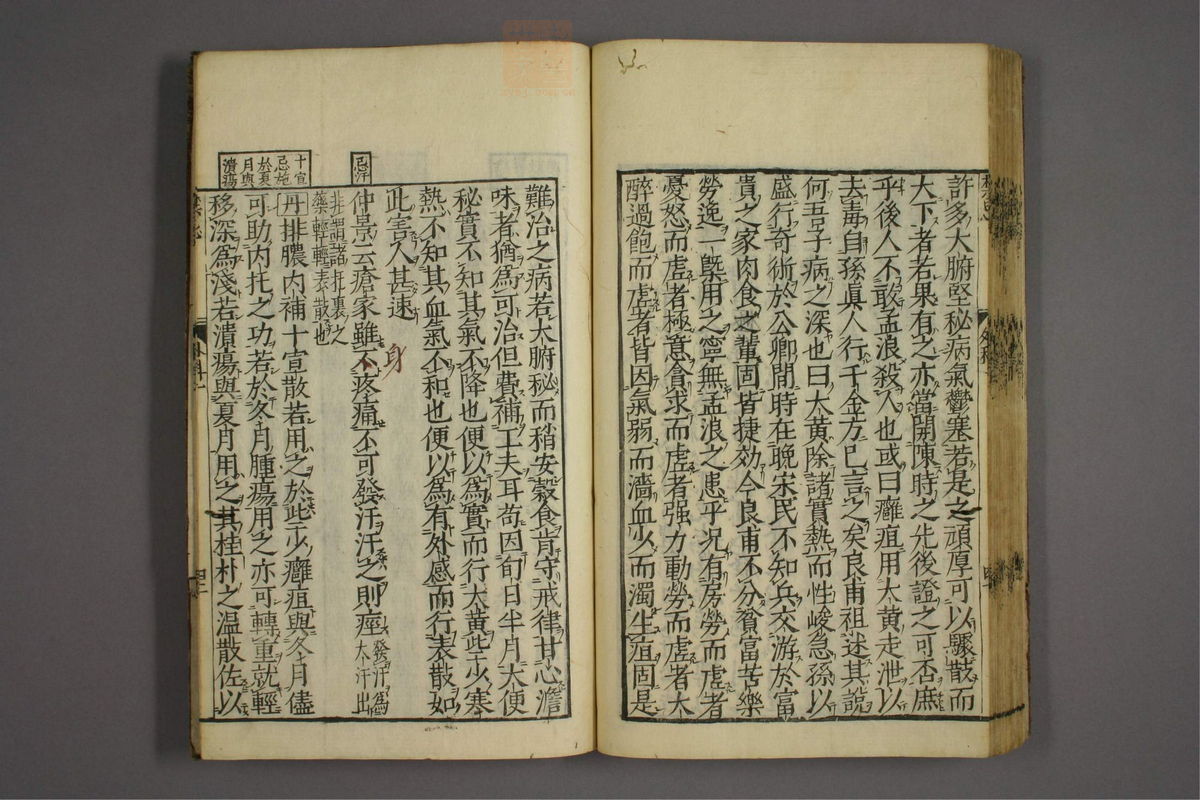 許多大腑堅秘病氣鬱塞若是之頑厚可以驟散而
大下者若果有之亦當開陳時之先後證之可否庶
乎後人不敢孟浪殺人也或曰癰疽用大黃走泄以
去毒自孫眞人行千金方已言之矣良甫祖述其說
何吾子病之深也曰大黃除諸實熱而性峻急孫以
盛行奇術於公卿間時在晚宋民不知兵交游於富
貴之家肉食之輩固皆捷効今良甫不分貧富苦樂
勞逸一槩用之寧無孟浪之患乎況有房勞而虛者
憂怒而虛者極意貪求而虛者强力動勞而虛者大
醉過飽而虛者皆因氣弱而濇血少而濁生疽固是
難治之病若大腑秘而稍安穀食肯守戒律甘心澹
味者猶爲可治但費補工夫耳苟因旬日半月大便
秘實不知其氣不降也便以爲實而行大黃些少寒
熱不知其血氣不和也便以爲有外感而行表散如
此害人甚速
忌汗
仲景云瘡家雖不疼痛不可發汗汗之則痙發汗爲
大汗出
身
非謂諸托裏之
藥輕輕表散也
十宣
忌施
於夏
月與
潰瘍
丹排膿内補十宣散若用之於些少癰疽與冬月儘
可助内托之功若於冬月腫瘍用之亦可轉重就輕
移深爲淺若潰瘍與夏月用之其桂朴之温散佐以
外科一